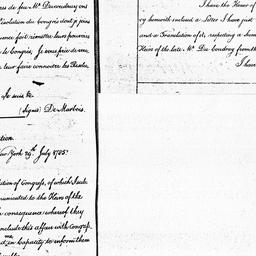 ères de feu Mr. Ducoudray ont
résolution du Congrès dont je joins
fort résister leurs pouvoirs
le Congrès. Je vous prie de me
leur faire connoitre les Résolu
Je suis &c.
(signé) De Marbois.
tion
New York 29th July 1785.
lition of Congress, of which I sub
mmunicated to the Heirs of the
consequence whereof they
nclude this affair with Congress.
me in capacity to inform them
I have the Honor of
ry herewith enclosed a Letter I have just
and a Translation of it, respecting a sum
Heirs of the late Mr. Du Coudray from th
I have